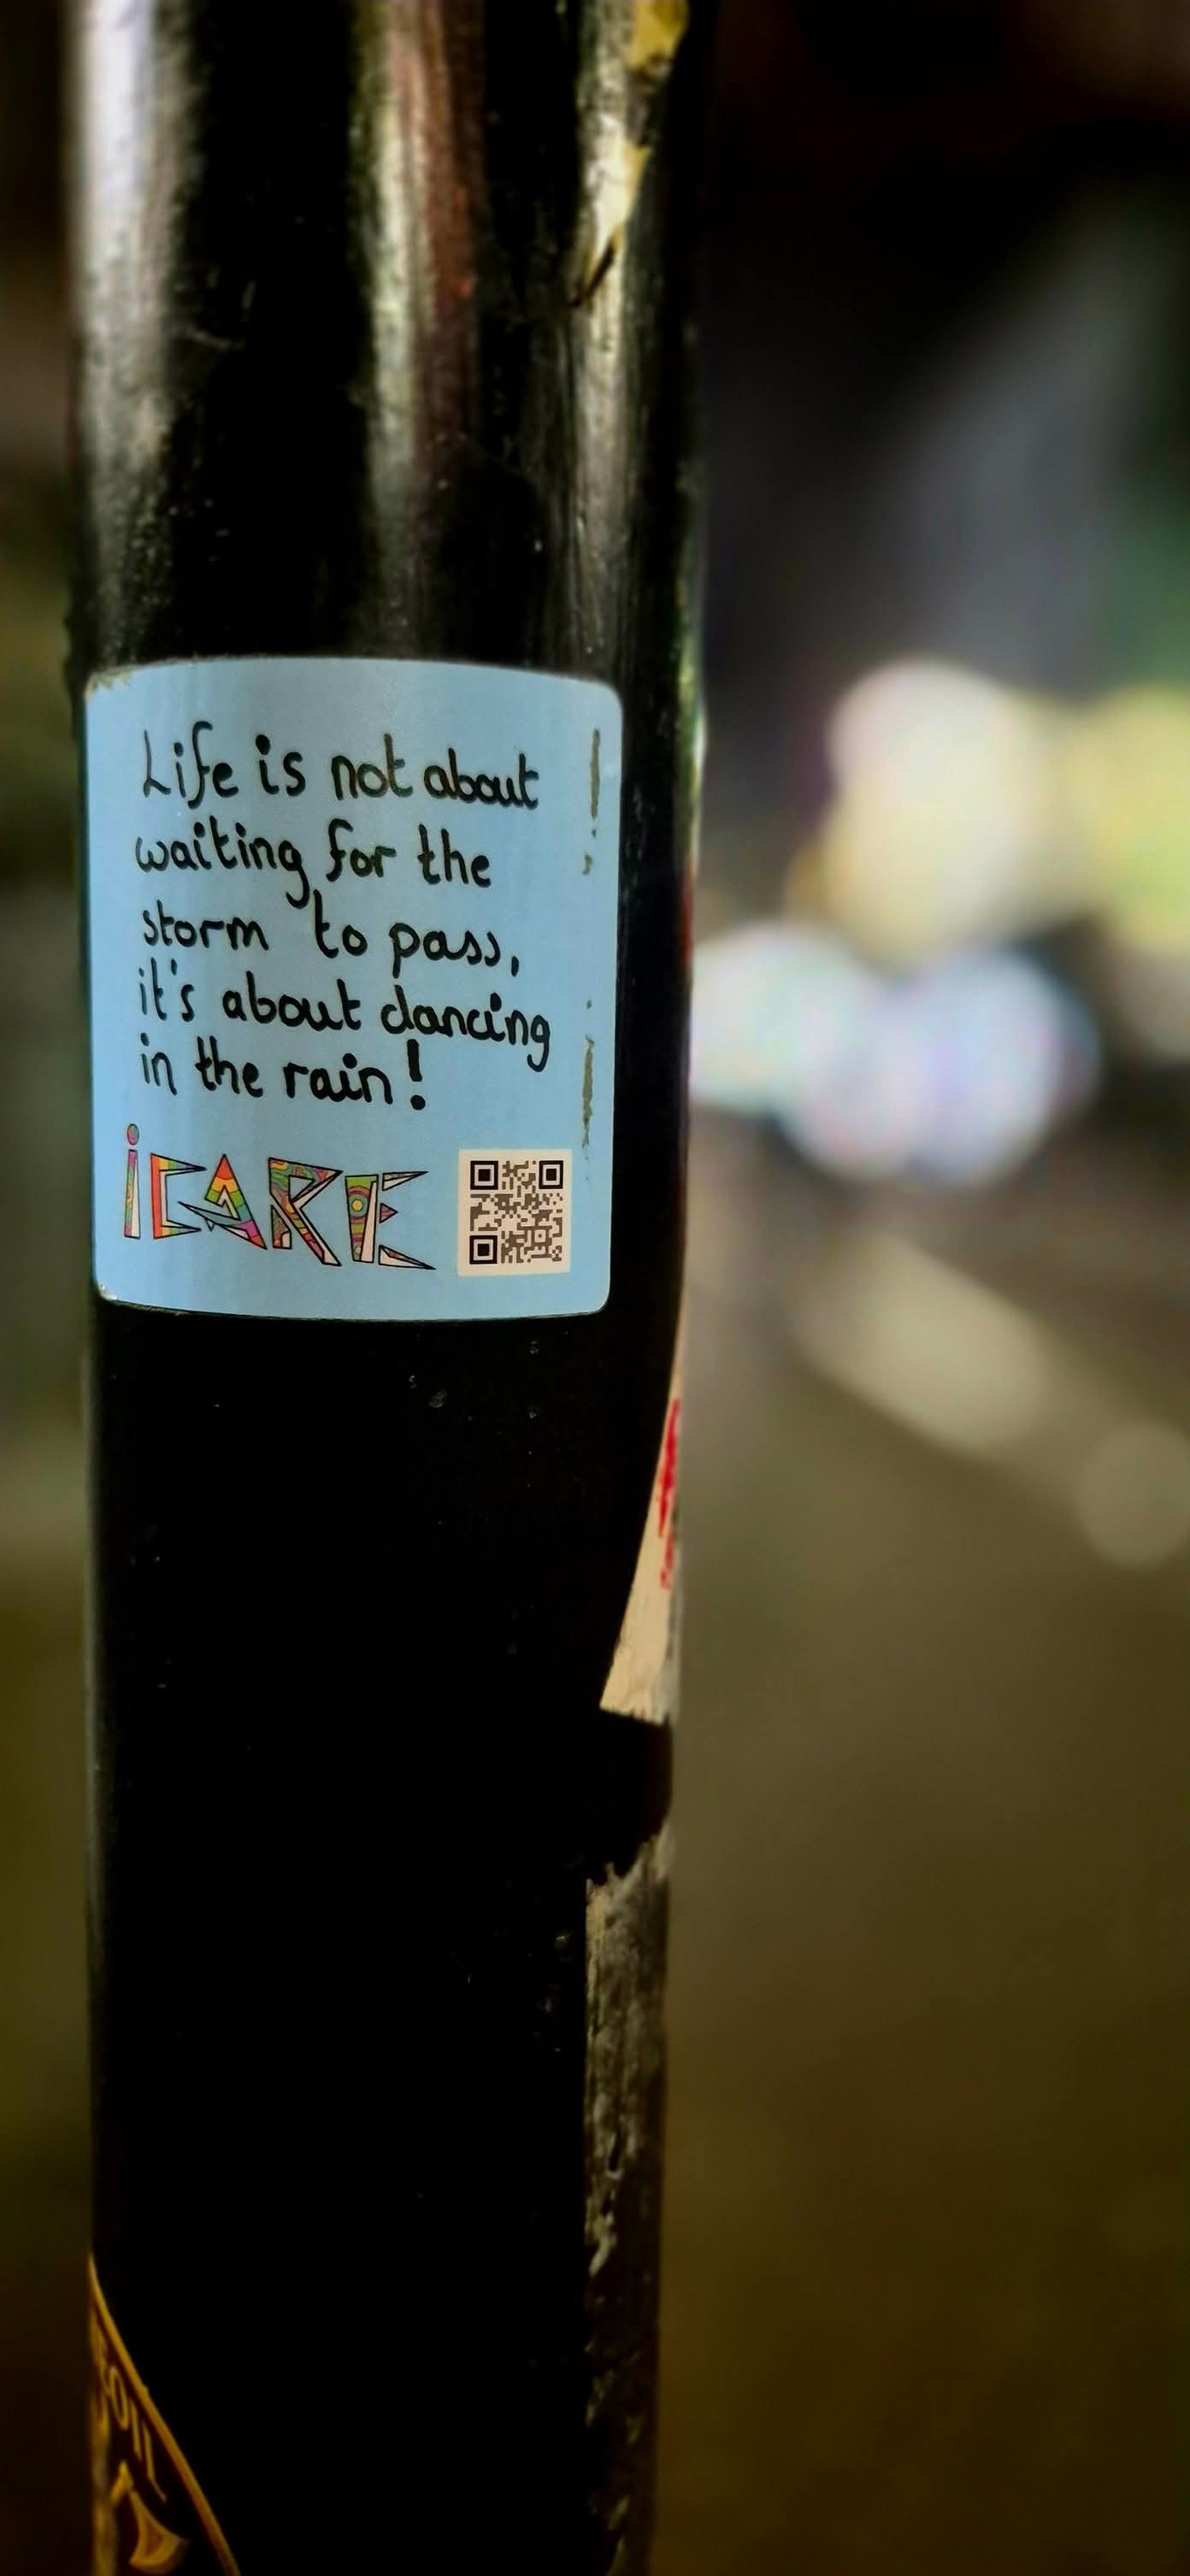 Life is not about
waiting for the
storm to pass,
it's about dancing
in the rain!
iCARE